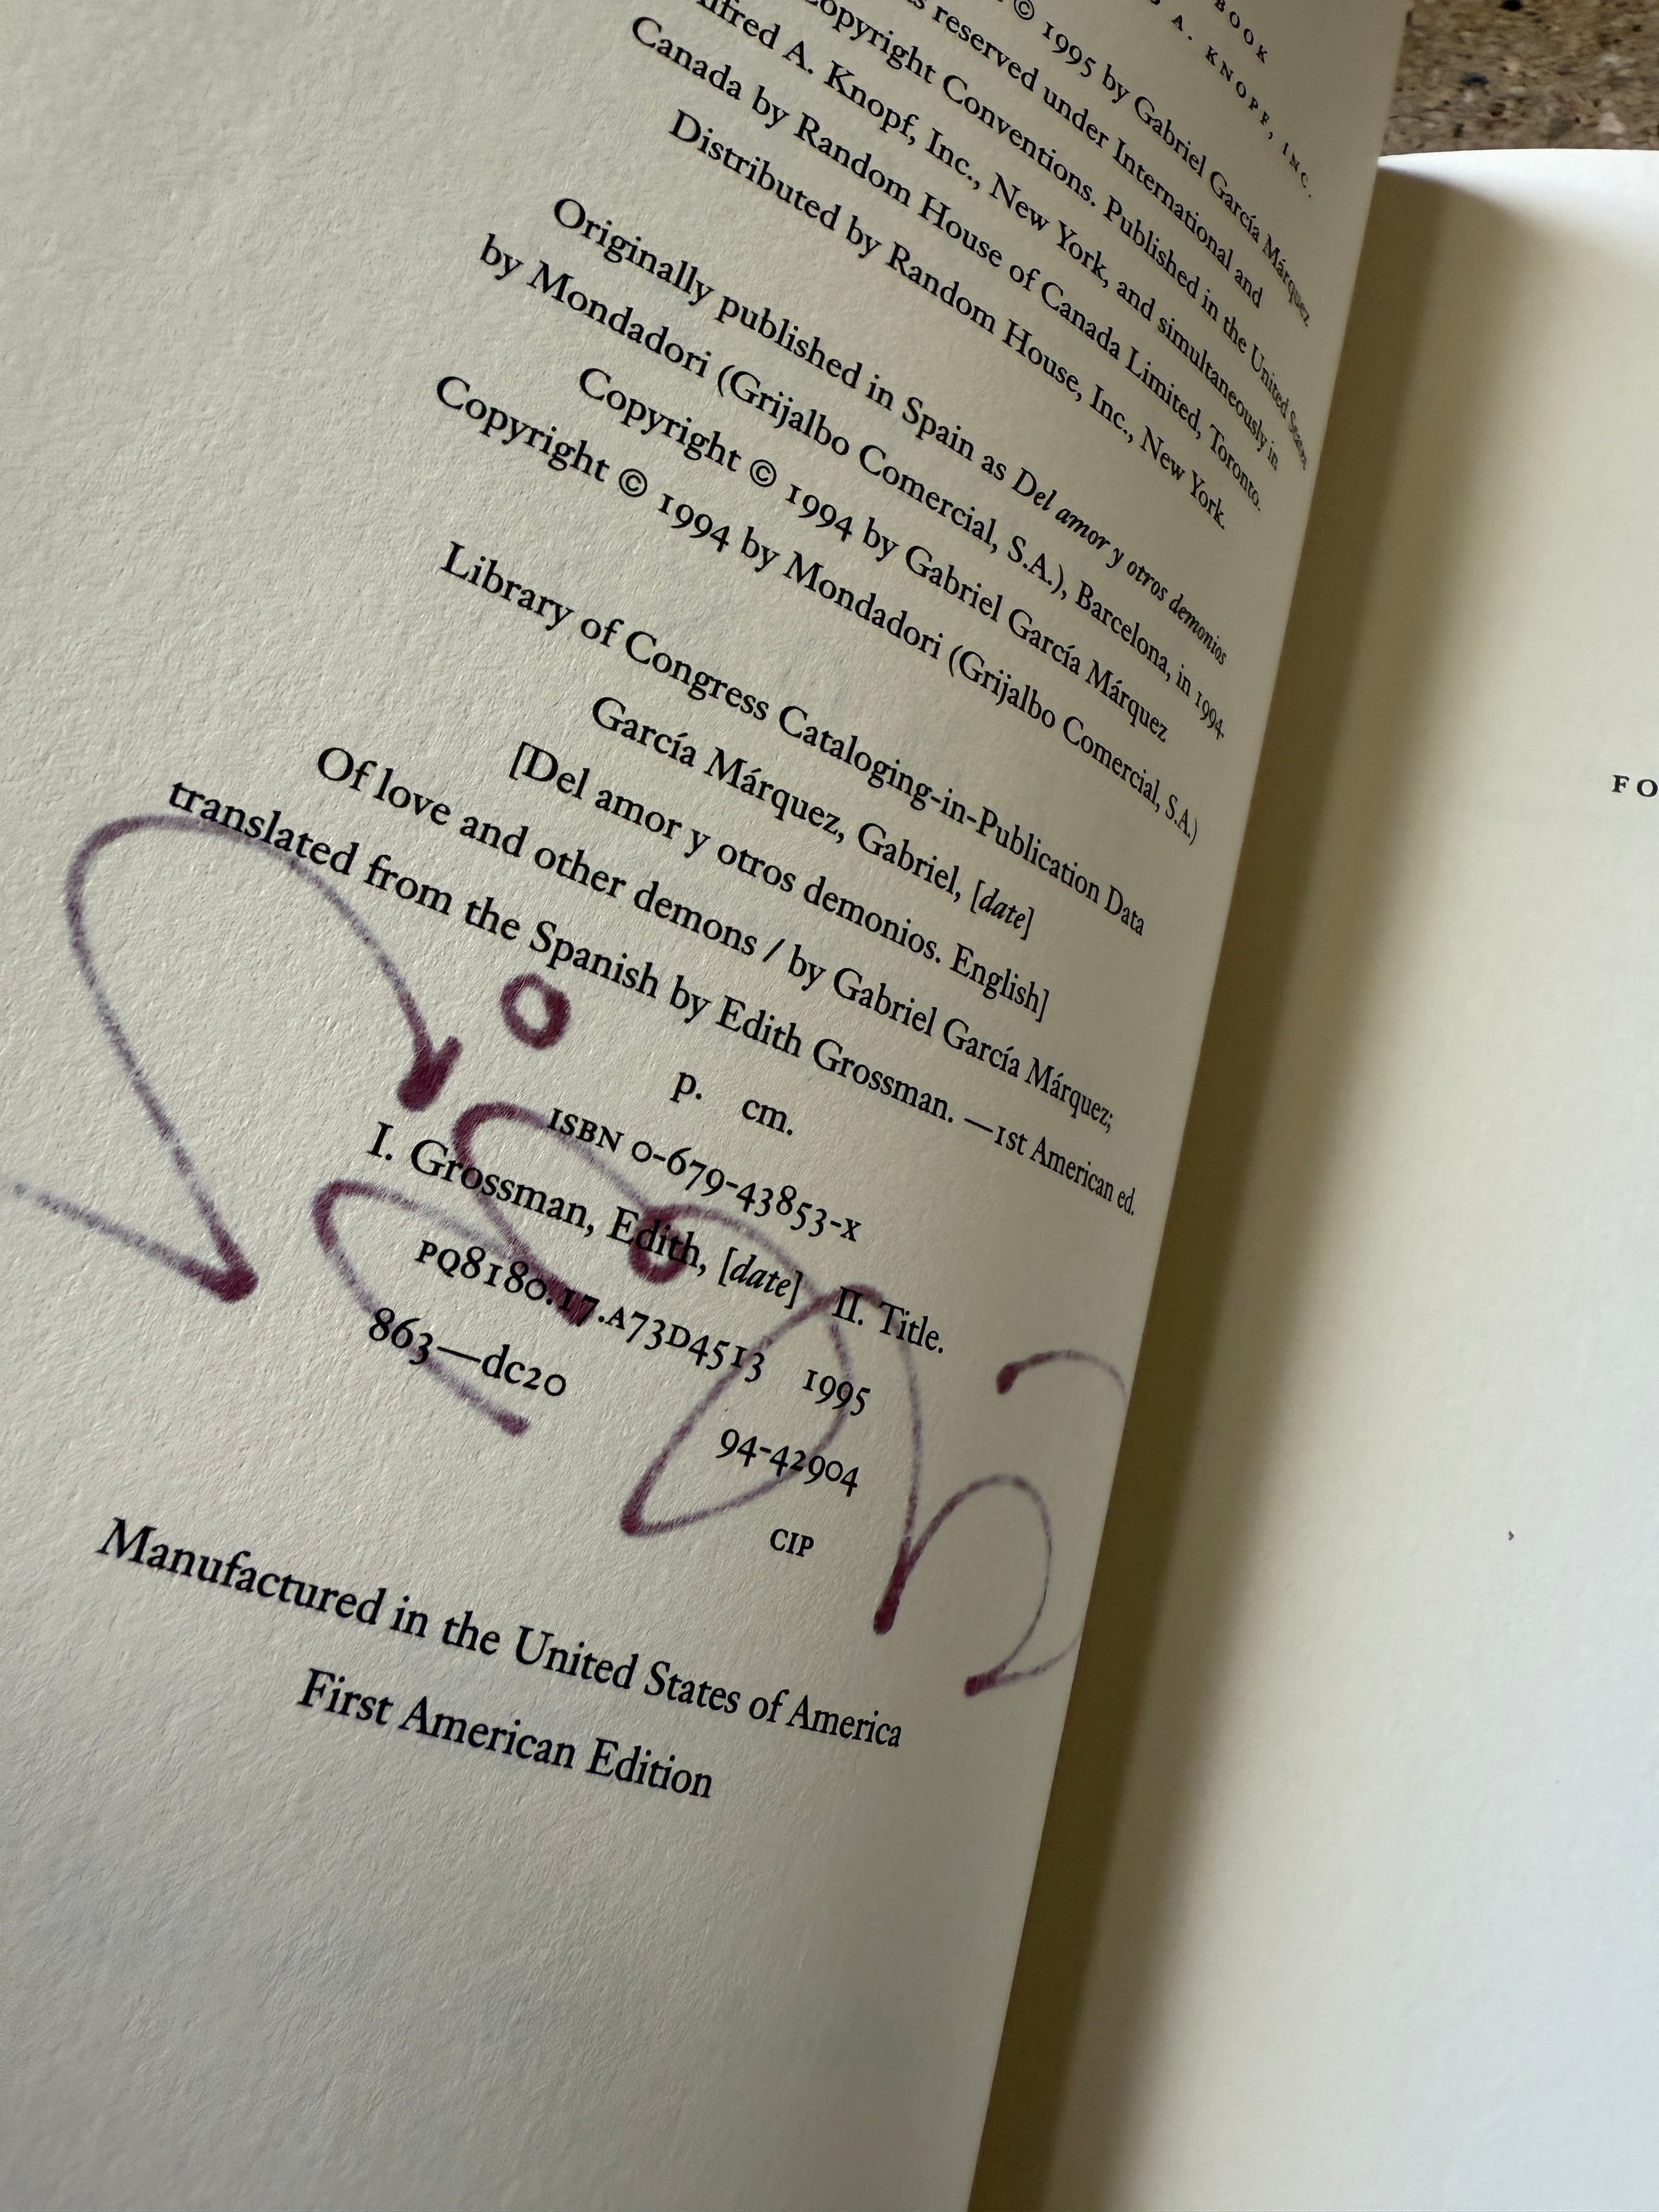 BOOK
A. KNOPF, INC.
© 1995 by Gabriel García Márquez
reserved under International and
Copyright Conventions. Published in the United States
Alfred A. Knopf, Inc., New York, and simultaneously in
Canada by Random House of Canada Limited, Toronto.
Distributed by Random House, Inc., New York.
Originally published in Spain as Del amor y otros demonios
by Mondadori (Grijalbo Comercial, S.A.), Barcelona, in 1994
Copyright © 1994 by Gabriel García Márquez
Copyright © 1994 by Mondadori (Grijalbo Comercial, S.A.)
Library of Congress Cataloging-in-Publication Data
García Márquez, Gabriel, [date]
[Del amor y otros demonios. English]
Of love and other demons / by Gabriel García Márquez;
translated from the Spanish by Edith Grossman. —1st American ed.
p. cm.
ISBN 0-679-43853-X
I. Grossman, Edith, [date] II. Title.
PQ8180.17.A73D4513 1995
863—dc20 94-42904
CIP
Manufactured in the United States of America
First American Edition
FO